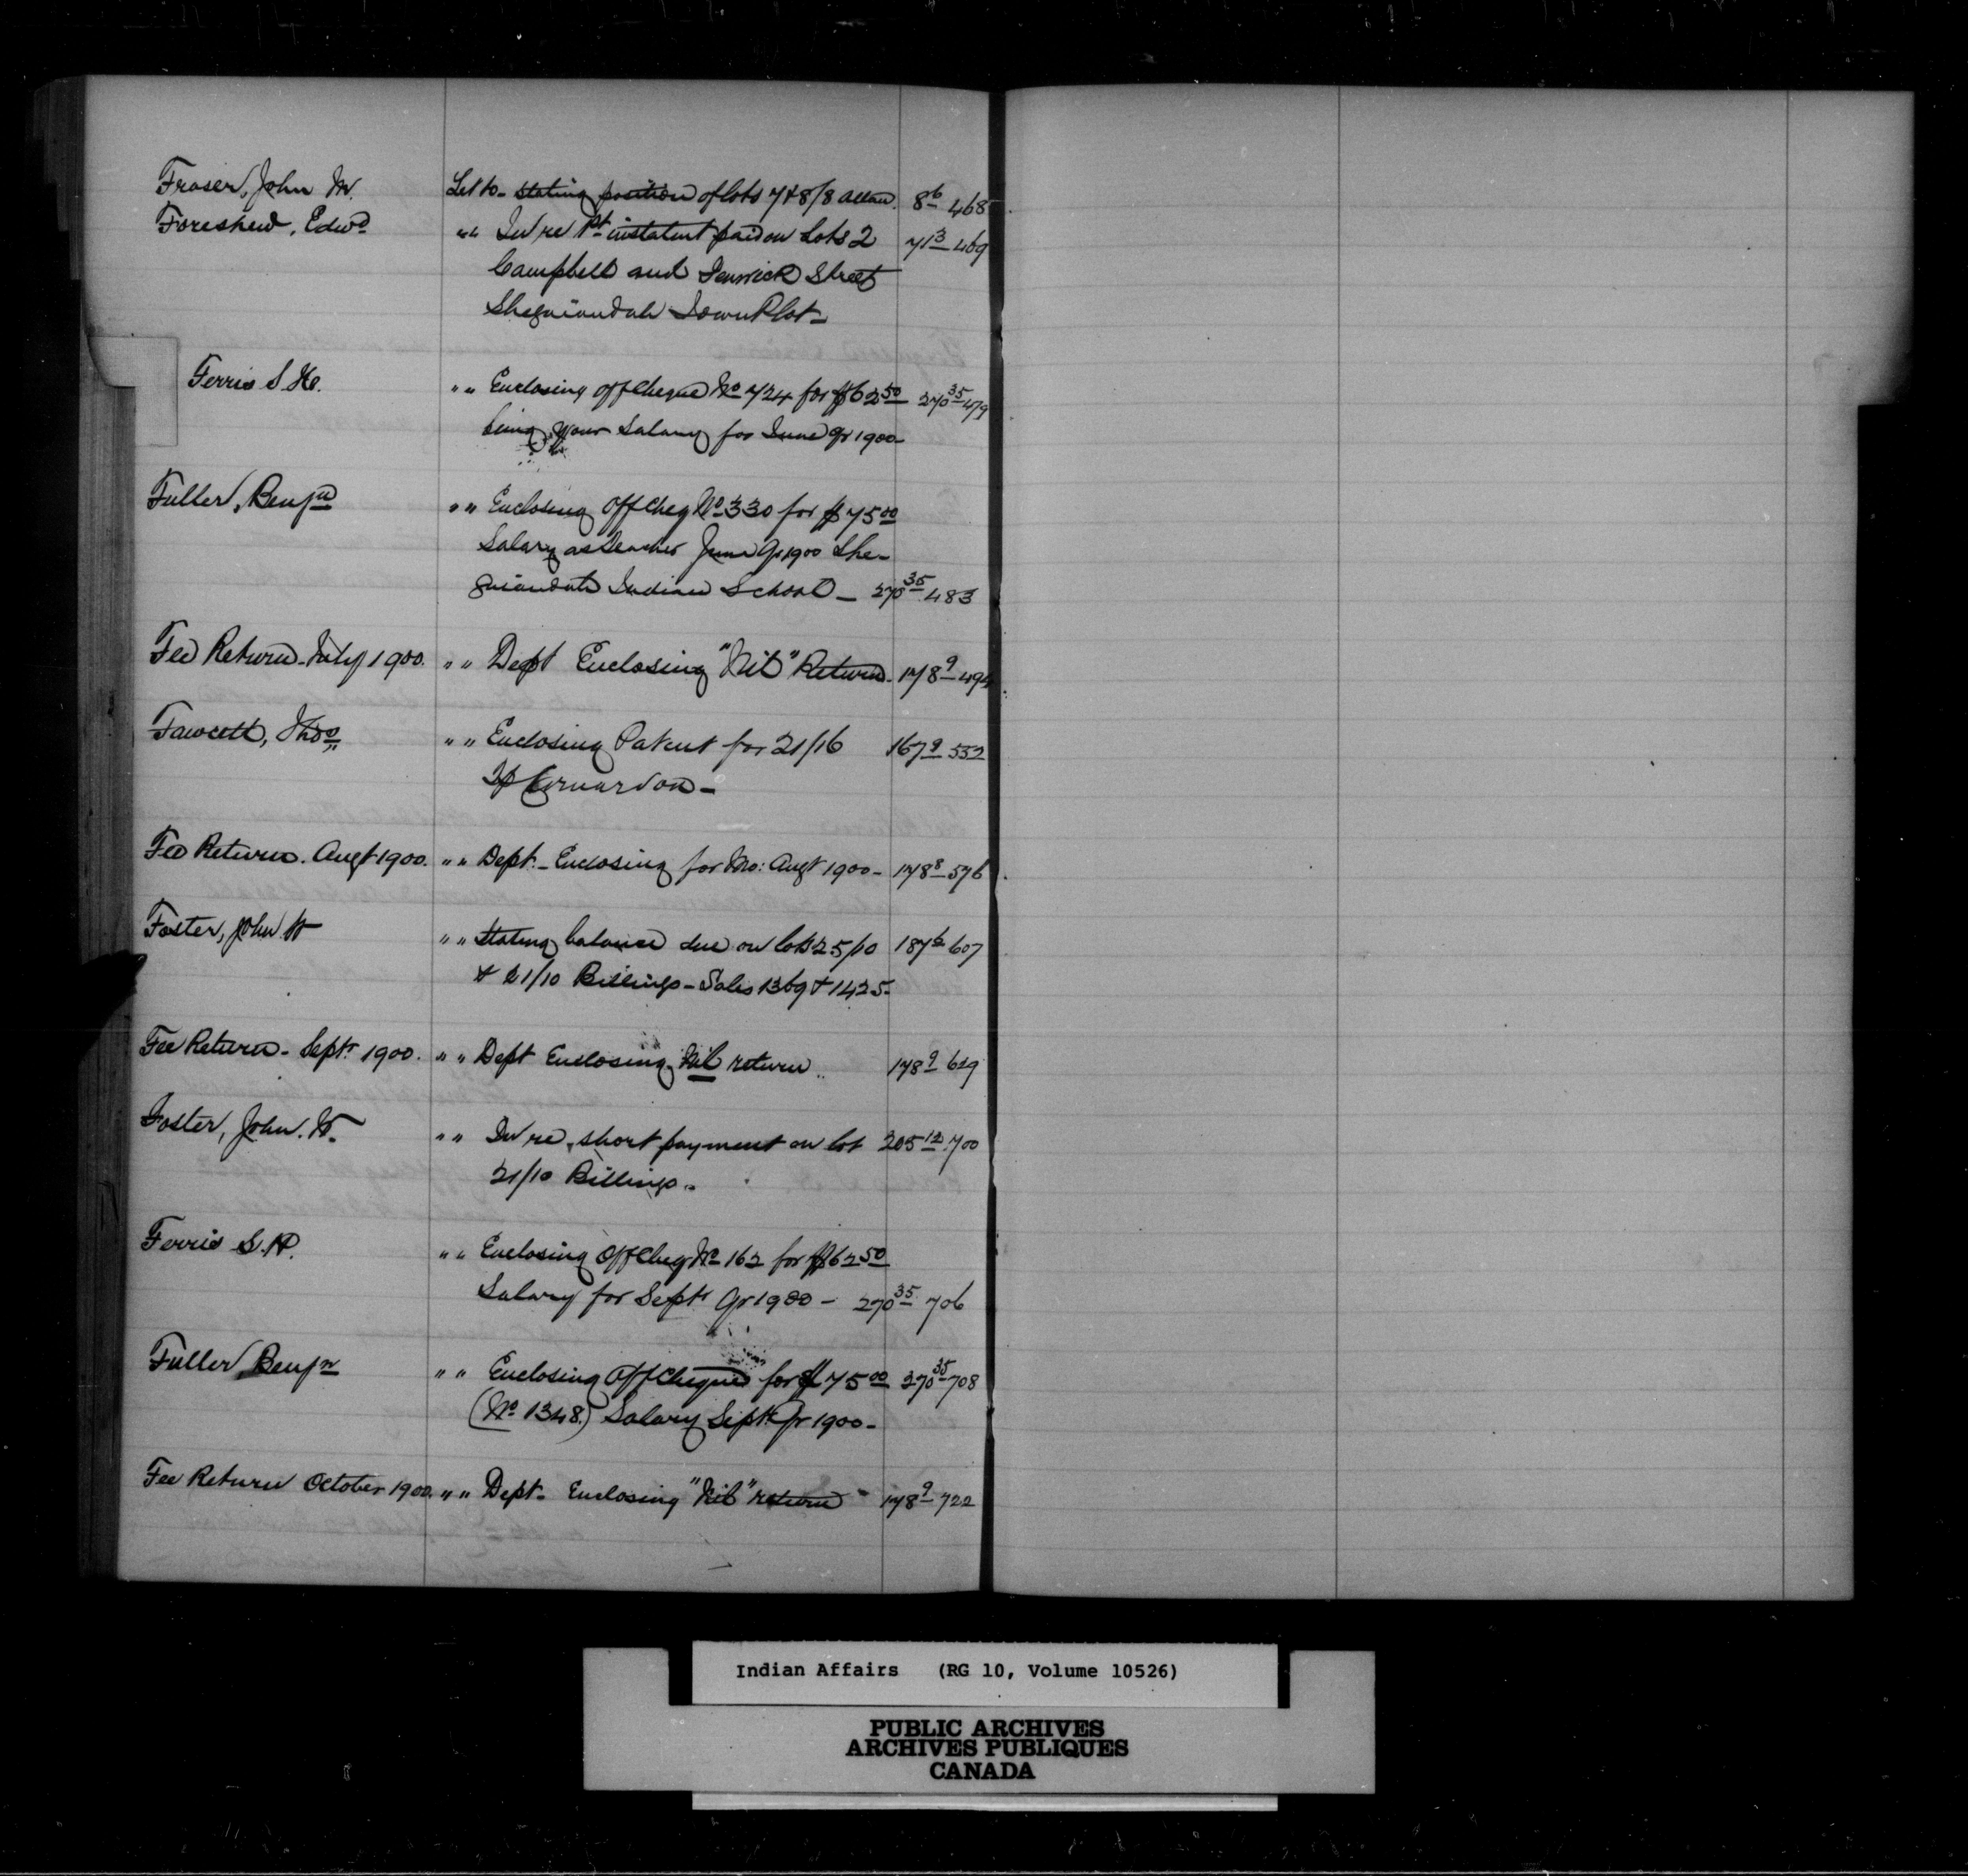 Fraser, John M. Let to - stating position of lots 7 & 8/8 Allan. 8 6 468
Foreshew, Edwd " " In re 1st instalmt paid on Lots 2 71 3 469
Campbell and Fenwick Street
Sheguiandah Town Plot -
Ferris S. H. " " Enclosing off Cheque No 724 for $62 50 270 35 479
being your Salary for June Qr 1900 -
Fuller, Benjn " " Enclosing Off Cheq No 330 for $75 00
Salary as Teacher June Qr 1900 She-
guiandah Indian School - 270 35 483
Fee Return - July 1900. " " Dept Enclosing "Nil" Return - 178 9
Fawcett, Thos " " Enclosing Patent for 21/16 167 9 532
Tp Carnarvon -
Fee Return. Augt 1900. " " Dept. - Enclosing for Mo: Augt 1900 - 178 8 576
Foster, John W " " stating balance due on lots 25/10 187 607
& 21/10 Billings - Sales 1369 & 1425 -
Fee Return - Septr 1900. " " Dept Enclosing Nil return 178 9 629
Foster, John. W. " " In re, short payment on lot 205 12 700
21/10 Billings.
Ferris S. H. " " Enclosing Off Cheq No 162 for $62 50
Salary for Septr Qr 1900 - 270 35 706
Fuller, Benjn " " Enclosing Off Cheque for $75 00 270 35 708
(No 1348.) Salary Septr Qr 1900 -
Fee Return October 1900. " " Dept - Enclosing "Nil" return - 178 9 722
Indian Affairs (RG 10, Volume 10526)
PUBLIC ARCHIVES
ARCHIVES PUBLIQUES
CANADA